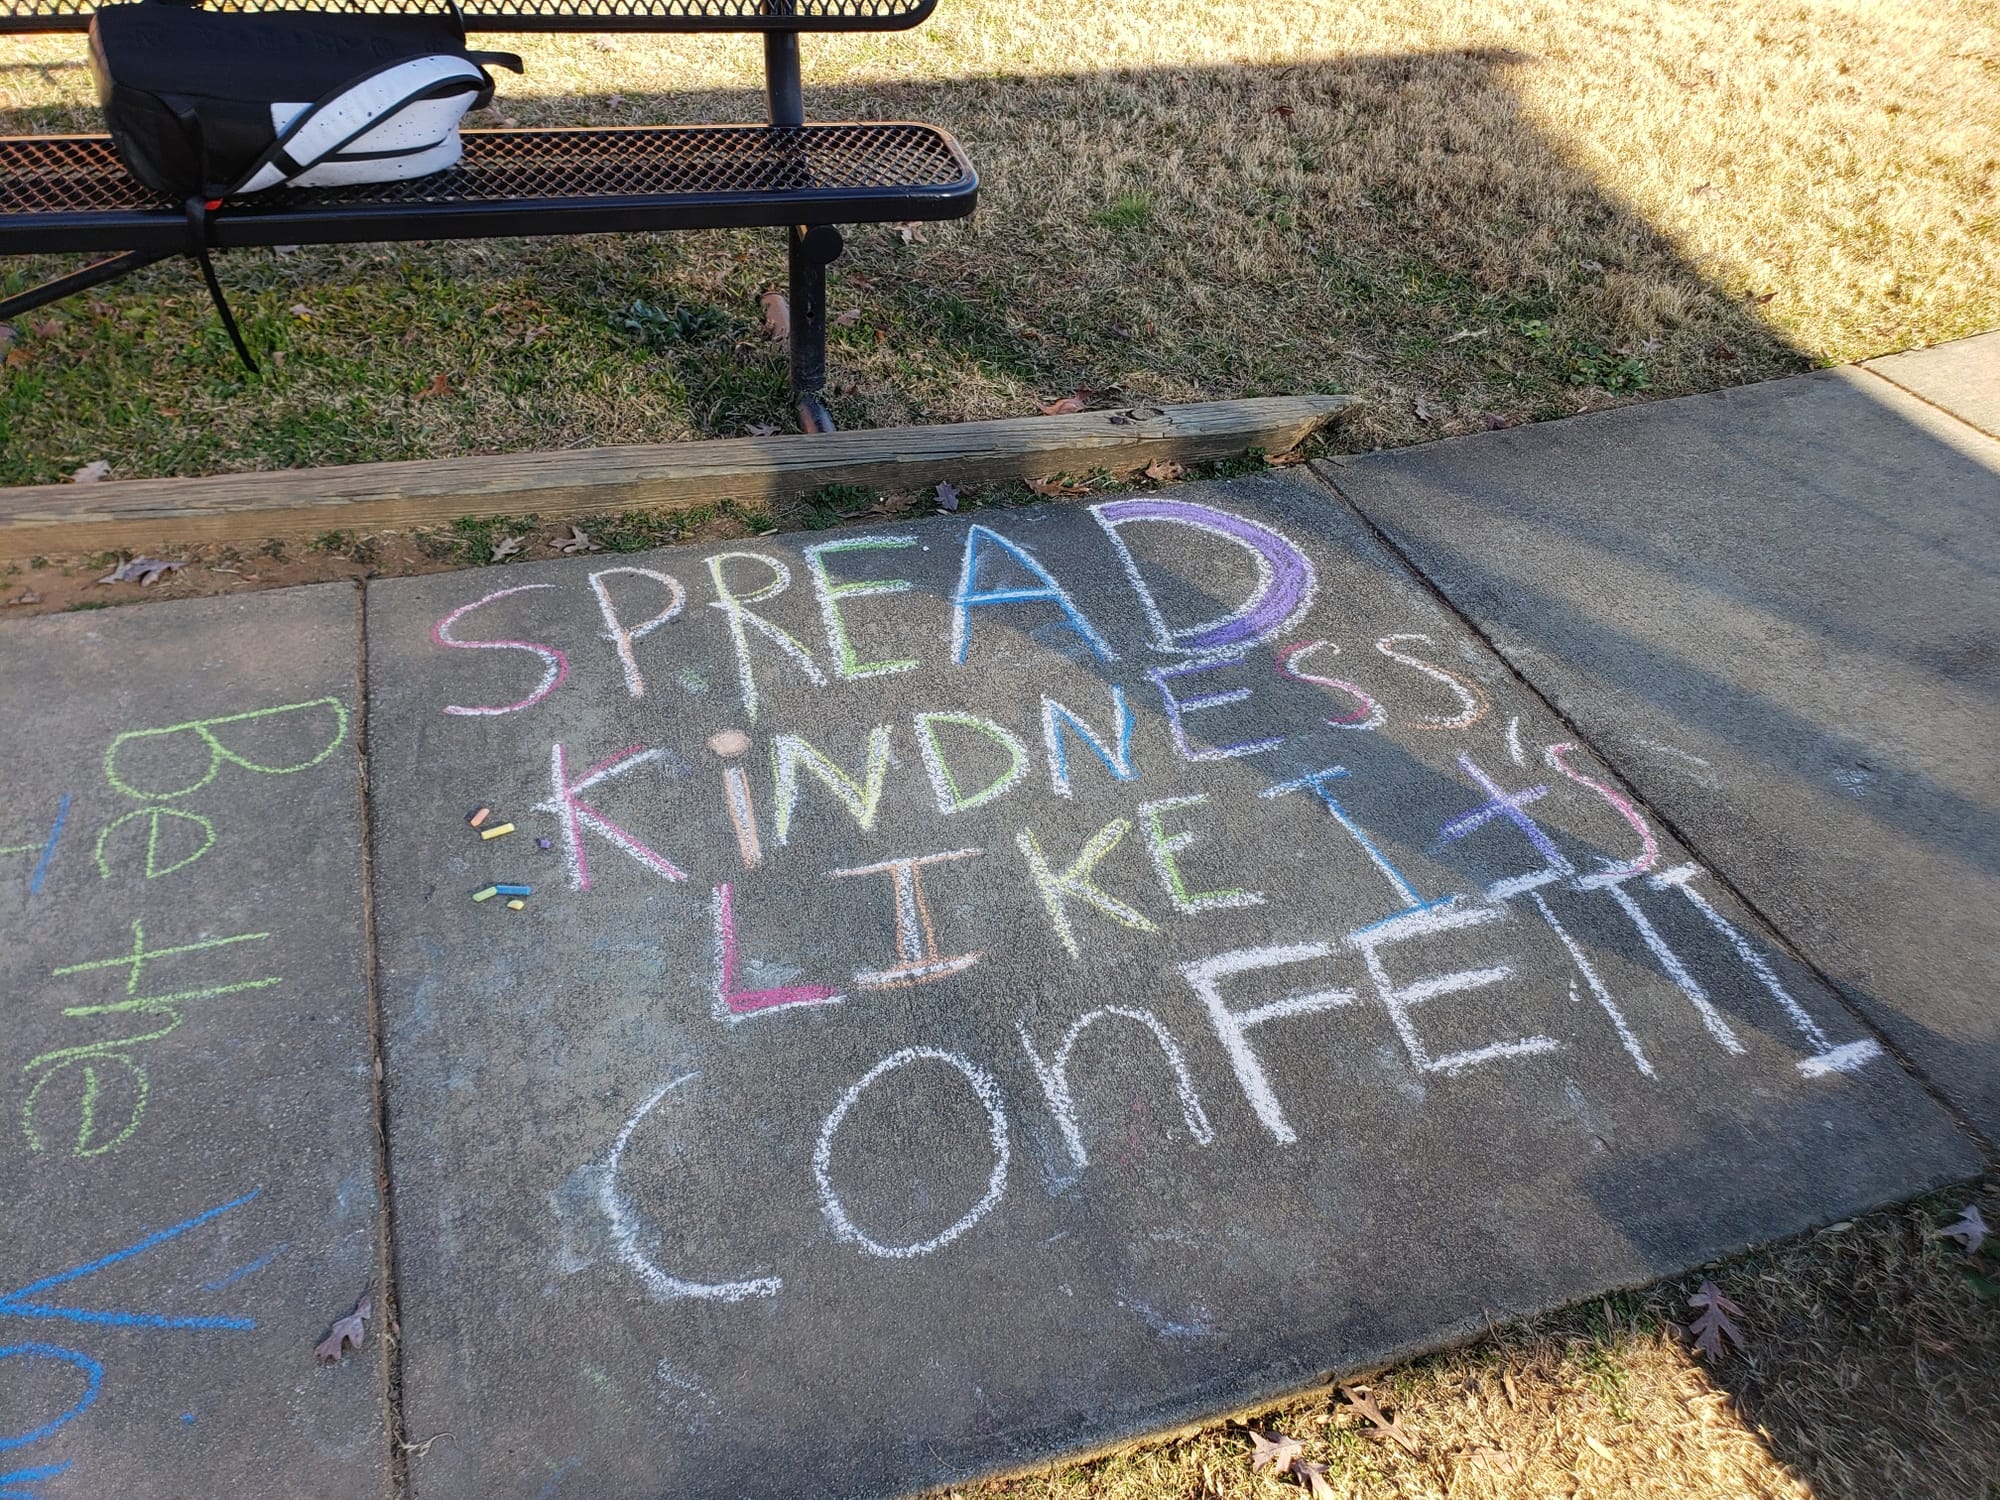 SPREAD
KiNDNESS,
LIKE It'S
ConFETTI
Be the